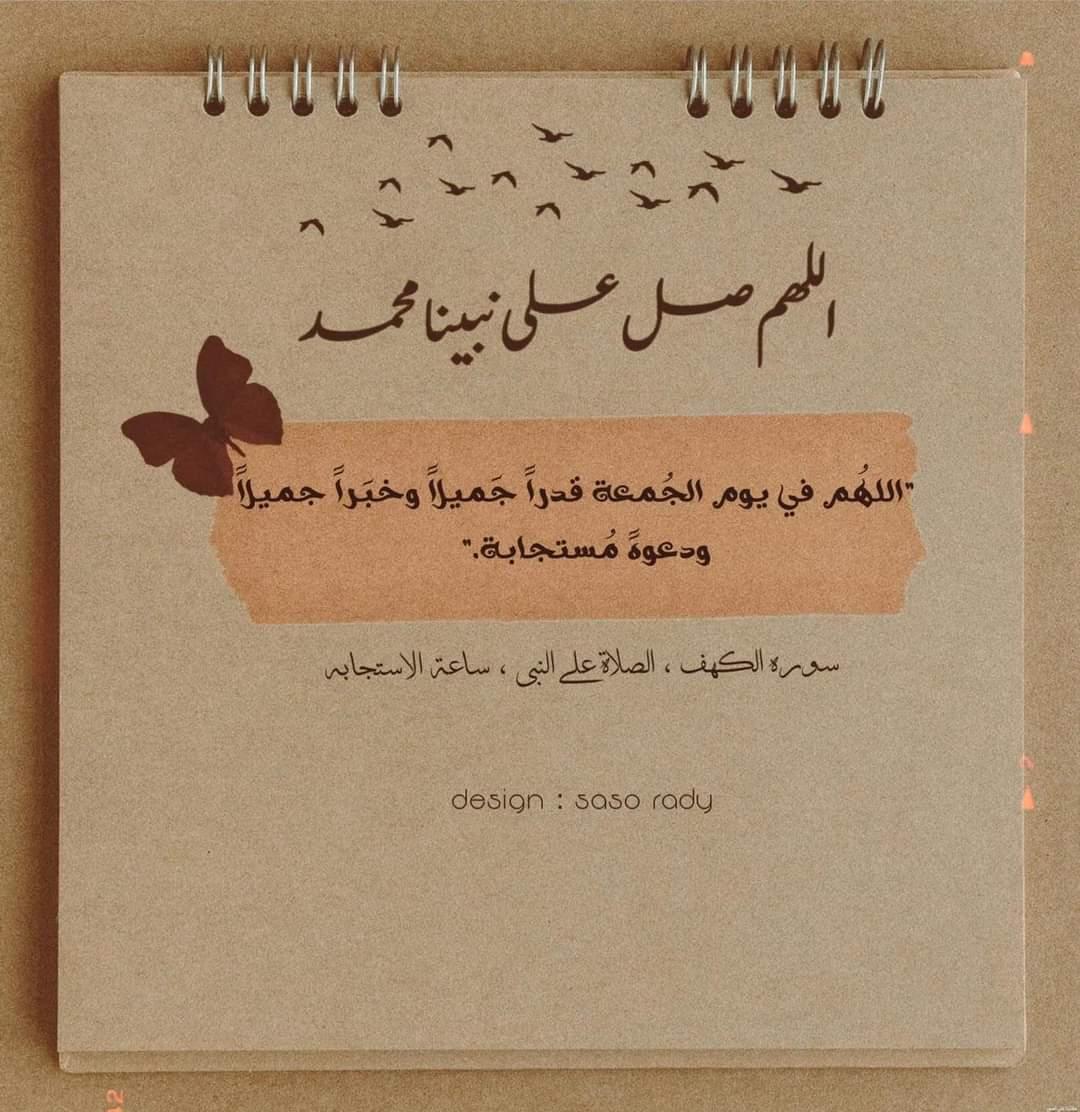 اللهم صل على نبينا محمد
"اللهُم في يوم الجُمعة قدراً جَميلاً وخبَراً جميلاً
ودعوةً مُستجابة."
سوره الكهف ، الصلاة على النبى ، ساعة الاستجابه
design : saso rady
2
12